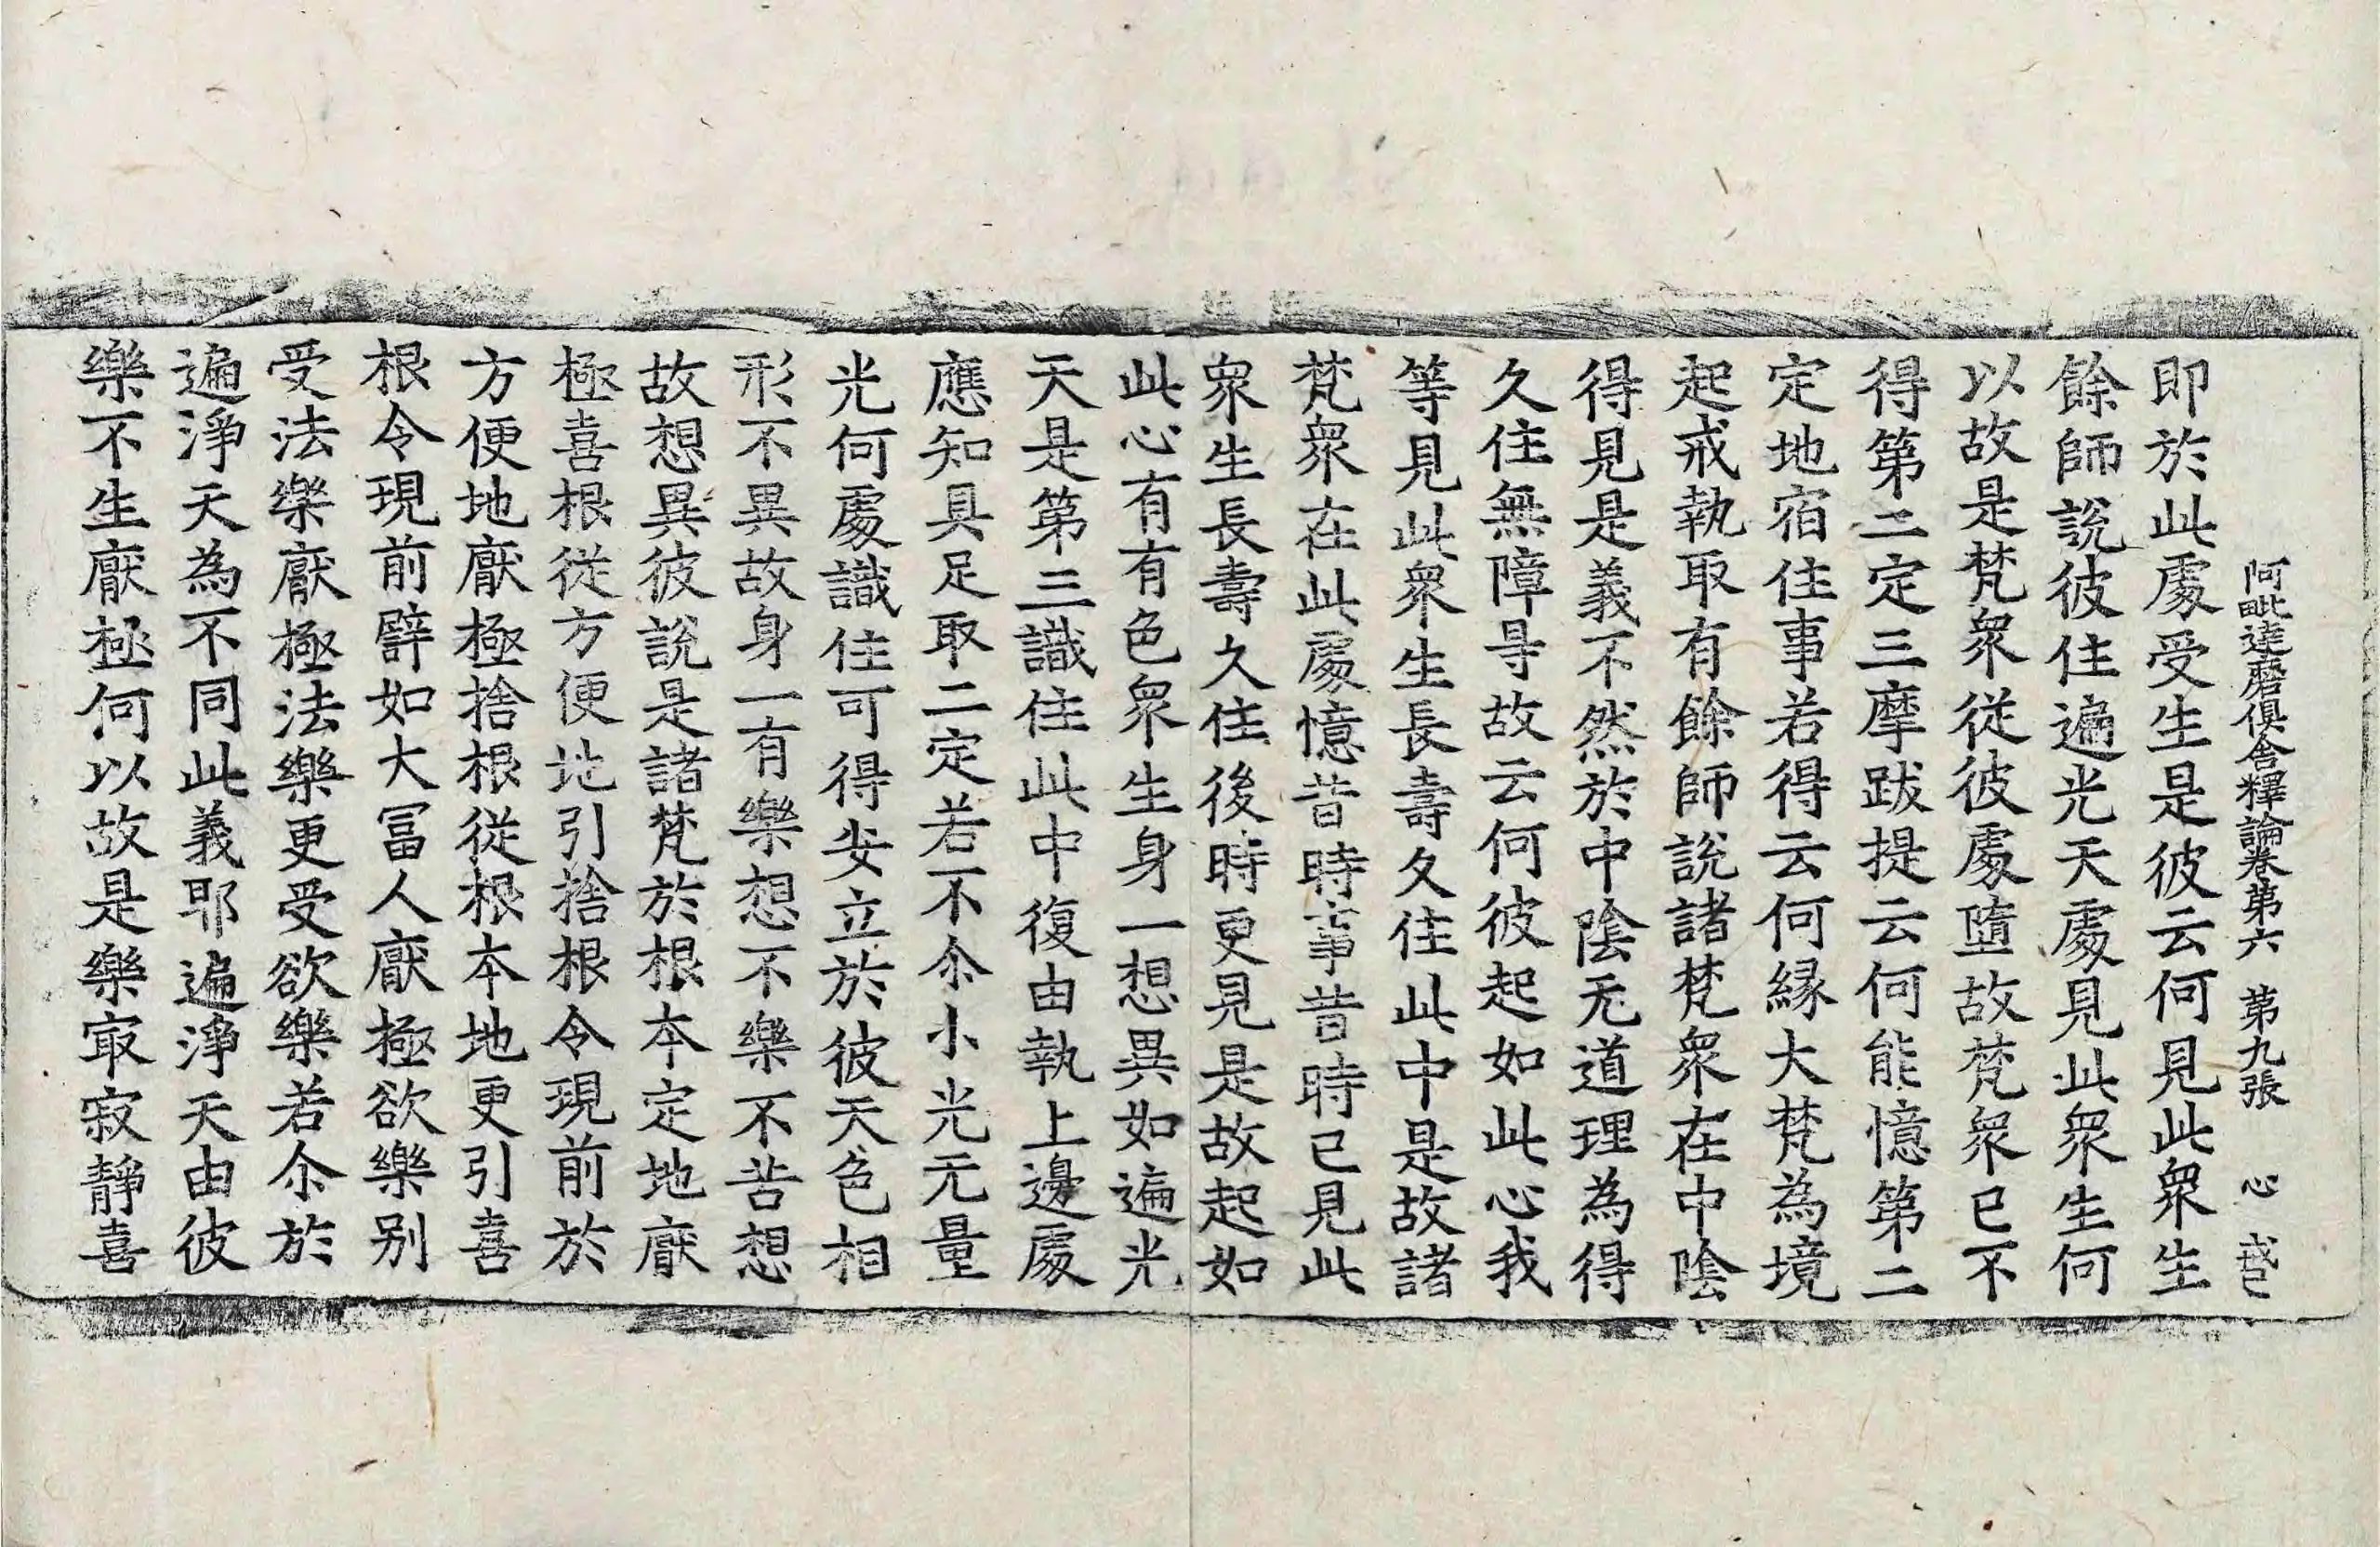 阿毗達磨俱舍釋論卷第六 第九張 心
即於此處受生是彼云何見此衆生
餘師說彼住遍光天處見此衆生何
以故是梵衆從彼處墮故梵衆已不
得第二定三摩跋提云何能憶第二
定地宿住事若得云何緣大梵為境
起戒執取有餘師說諸梵衆在中陰
得見是義不然於中陰无道理為得
久住無障㝵故云何彼起如此心我
等見此衆生長壽久住此中是故諸
梵衆在此處憶昔時事昔時已見此
衆生長壽久住後時更見是故起如
此心有有色衆生身一想異如遍光
天是第三識住此中復由執上邊處
應知具足取二定若不尒小光无量
光何處識住可得安立於彼天色相
形不異故身一有樂想不樂不苦想
故想異彼說是諸梵於根本定地猒
極喜根從方便地引捨根令現前於
方便地猒極捨根從根本地更引喜
根令現前譬如大冨人猒極欲樂别
受法樂猒極法樂更受欲樂若尒於
遍淨天為不同此義耶遍淨天由彼
樂不生猒極何以故是樂㝡寂靜喜